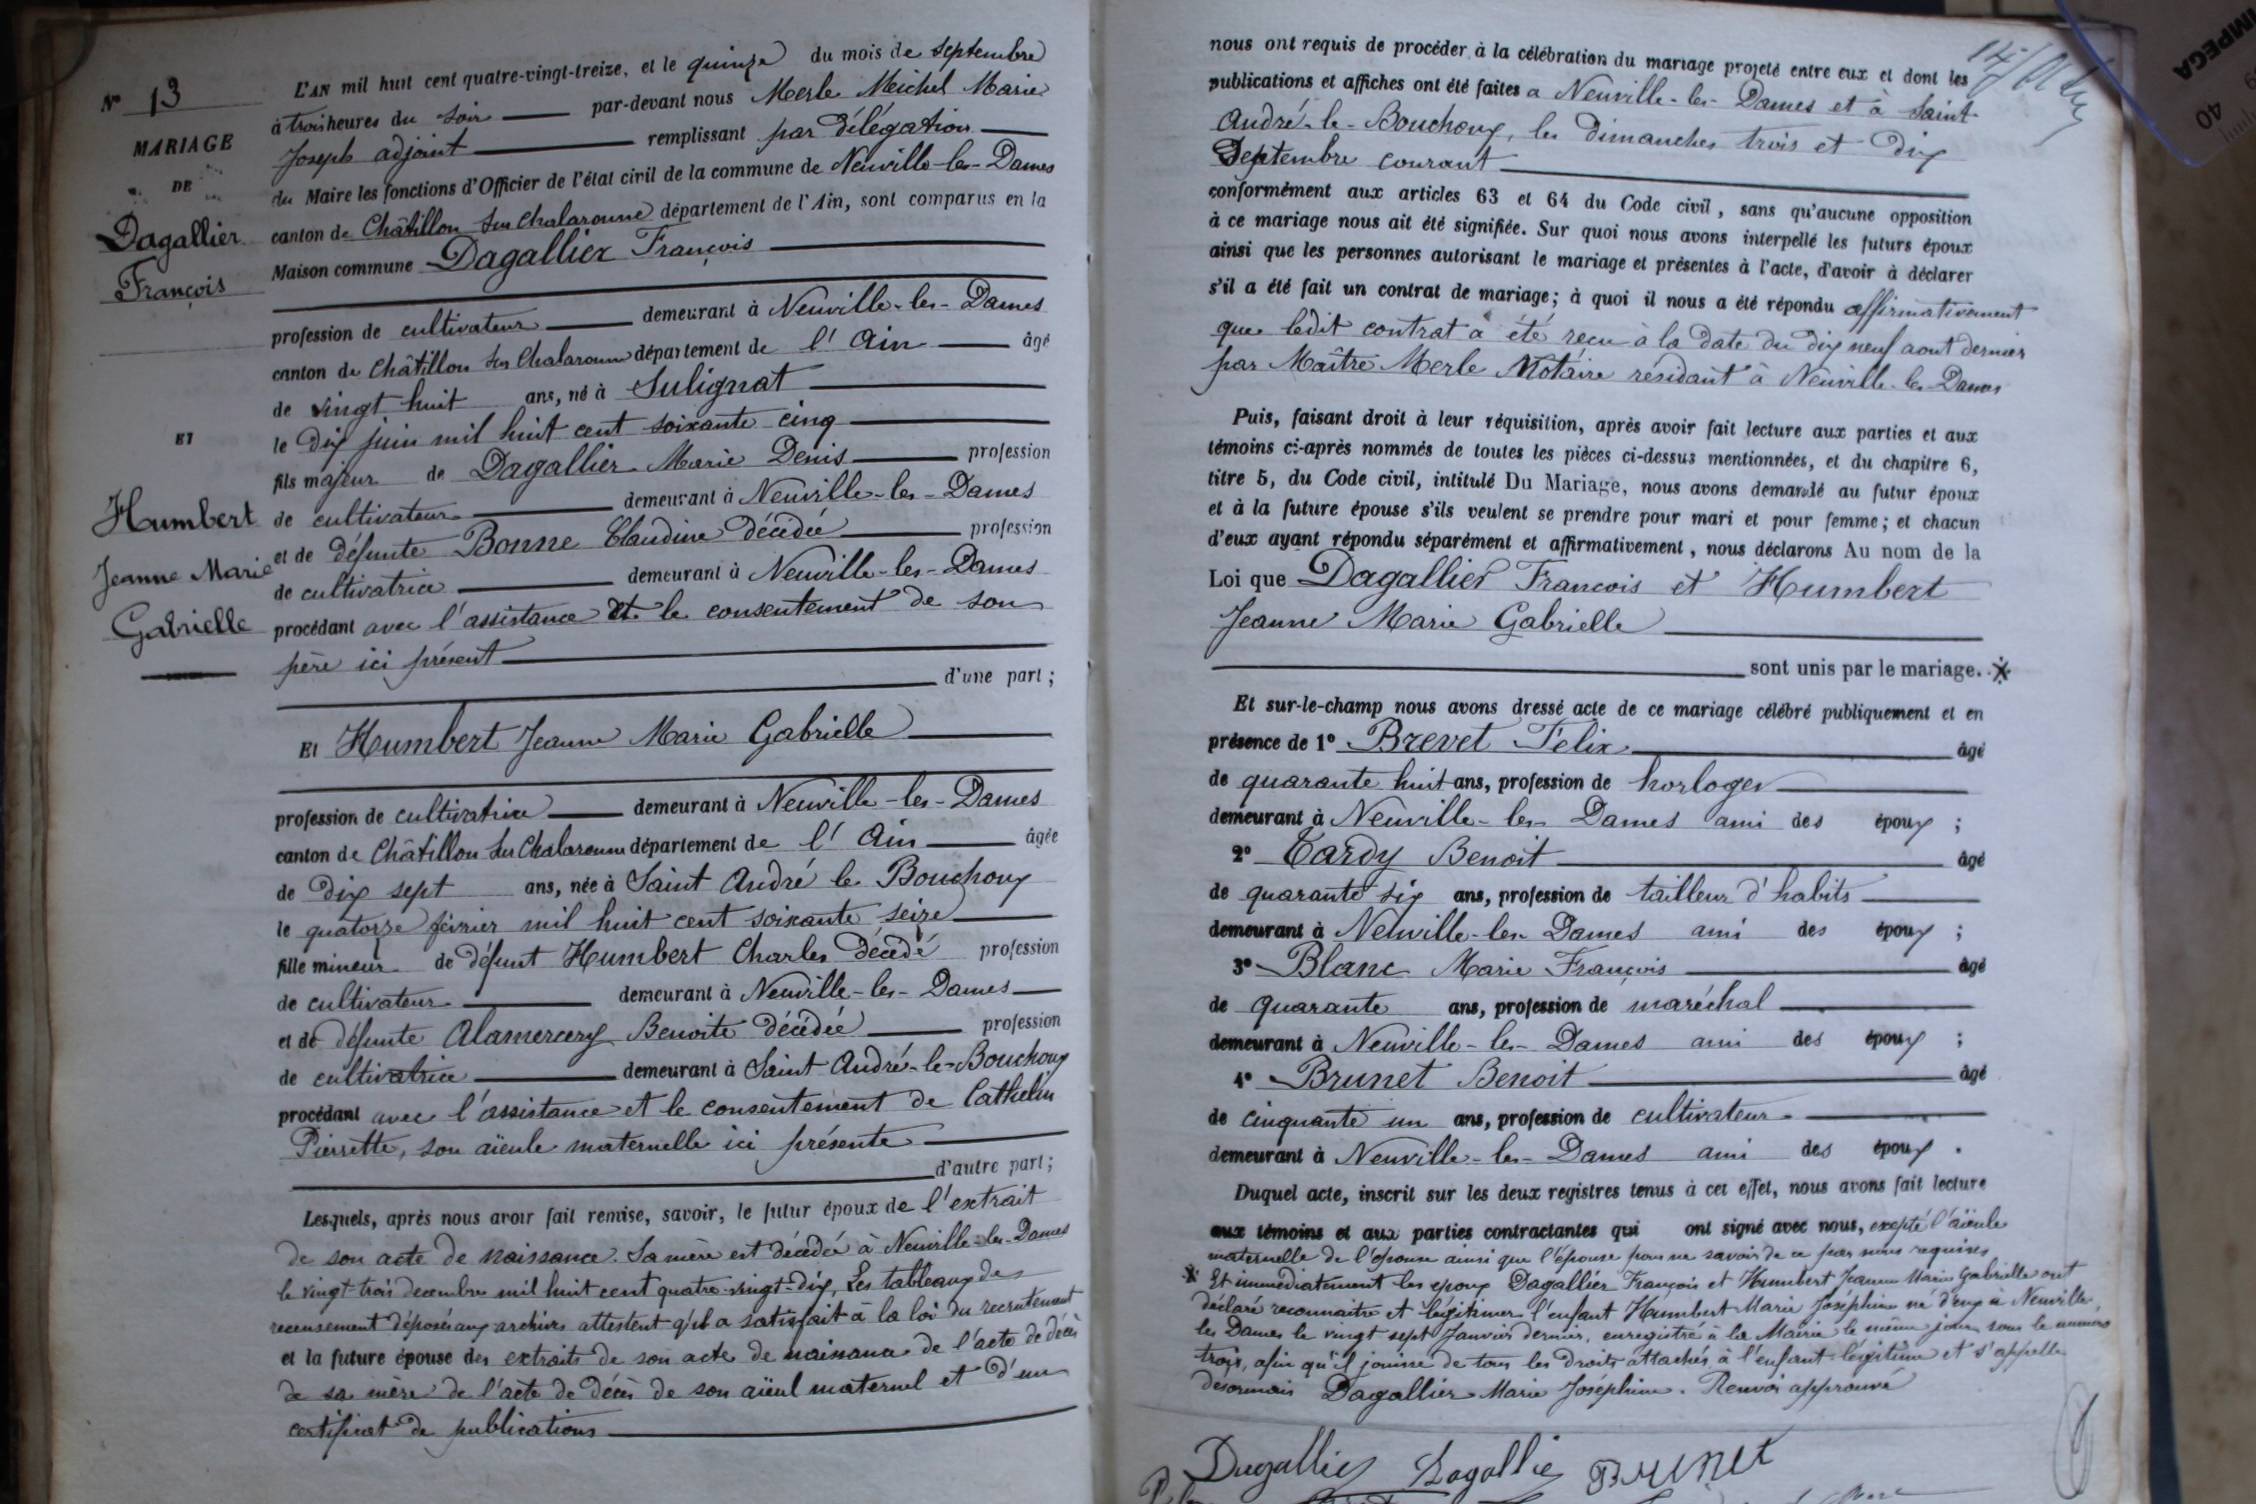 N° 13
MARIAGE
DE
Dagallier
François
ET
Humbert
Jeanne Marie
Gabrielle
L'AN mil huit cent quatre-vingt-treize, et le quinze du mois de Septembre
à trois heures du soir par-devant nous Merle Meichel Marie
Joseph adjoint remplissant par délégation
du Maire les fonctions d'Officier de l'état civil de la commune de Neuville-les-Dames
canton de Châtillon sur Chalaronne département de l'Ain, sont comparus en la
Maison commune Dagallier François
profession de cultivateur demeurant à Neuville-les-Dames
canton de Châtillon sur Chalaronne département de l'Ain âgé
de vingt huit ans, né à Sulignat
le dix juin mil huit cent soixante cinq
fils majeur de Dagallier Marie Denis profession
de cultivateur demeurant à Neuville-les-Dames
et de défunte Bonne Claudine décédée profession
de cultivatrice demeurant à Neuville-les-Dames
procédant avec l'assistance et le consentement de son
père ici présent
d'une part;
Et Humbert Jeanne Marie Gabrielle
profession de cultivatrice demeurant à Neuville-les-Dames
canton de Châtillon sur Chalaronne département de l'Ain âgée
de dix sept ans, née à Saint André le Bouchoux
le quatorze février mil huit cent soixante seize
fille mineur de défunt Humbert Charles décédé profession
de cultivateur demeurant à Neuville-les-Dames
et de défunte Alamercery Benoite décédée profession
de cultivatrice demeurant à Saint André-le-Bouchoux
procédant avec l'assistance et le consentement de Cathelin
Pierrette, son aïeule maternelle ici présente
d'autre part;
Lesquels, après nous avoir fait remise, savoir, le futur époux de l'extrait
de son acte de naissance. Sa mère est décédée à Neuville-les-Dames
le vingt-trois decembre mil huit cent quatre-vingt-dix, Les tableaux de
recensement déposés aux archives attestent qu'il a satisfait à la loi du recrutement
et la future épouse des extraits de son acte de naissance de l'acte de décès
de sa mère de l'acte de décès de son aïeul maternel et d'un
certificat de publications
nous ont requis de procéder à la célébration du mariage projeté entre eux et dont les
publications et affiches ont été faites a Neuville-les-Dames et à Saint-
André-le-Bouchoux, les dimanches trois et dix
Septembre courant
conformément aux articles 63 et 64 du Code civil, sans qu'aucune opposition
à ce mariage nous ait été signifiée. Sur quoi nous avons interpellé les futurs époux
ainsi que les personnes autorisant le mariage et présentes à l'acte, d'avoir à déclarer
s'il a été fait un contrat de mariage; à quoi il nous a été répondu affirmativement
que ledit contrat a été reçu à la date du dix neuf aout dernier
par Maître Merle Notaire résidant à Neuville-les-Dames
Puis, faisant droit à leur réquisition, après avoir fait lecture aux parties et aux
témoins ci-après nommés de toutes les pièces ci-dessus mentionnées, et du chapitre 6,
titre 5, du Code civil, intitulé Du Mariage, nous avons demandé au futur époux
et à la future épouse s'ils veulent se prendre pour mari et pour femme; et chacun
d'eux ayant répondu séparément et affirmativement, nous déclarons Au nom de la
Loi que Dagallier François et Humbert
Jeanne Marie Gabrielle
sont unis par le mariage.
Et sur-le-champ nous avons dressé acte de ce mariage célébré publiquement et en
présence de 1° Brevet Felix âgé
de quarante huit ans, profession de horloger
demeurant à Neuville-les-Dames ami des époux;
2° Tardy Benoit âgé
de quarante six ans, profession de tailleur d'habits
demeurant à Neuville-les-Dames ami des époux;
3° Blanc Marie François âgé
de quarante ans, profession de maréchal
demeurant à Neuville-les-Dames ami des époux;
4° Brunet Benoit âgé
de cinquante un ans, profession de cultivateur
demeurant à Neuville-les-Dames ami des époux.
Duquel acte, inscrit sur les deux registres tenus à cet effet, nous avons fait lecture
aux témoins et aux parties contractantes qui ont signé avec nous, excepté l'aïeule
maternelle de l'épouse ainsi que l'épouse pour ne savoir de ce par nous requises
Et immediatement les époux Dagallier François et Humbert Jeanne Marie Gabrielle ont
déclaré reconnaitre et légitimer l'enfant Humbert Marie Joséphine né d'eux à Neuville
les Dames le vingt sept Janvier dernier, enregistré à la Mairie le même jour sous le numero
trois, afin qu'il jouisse de tous les droits attachés à l'enfant légitime et s'appelle
désormais Dagallier Marie Joséphine. Renvoi approuvé
Dagallier Dagallier BRUNET
IMPEGA
40